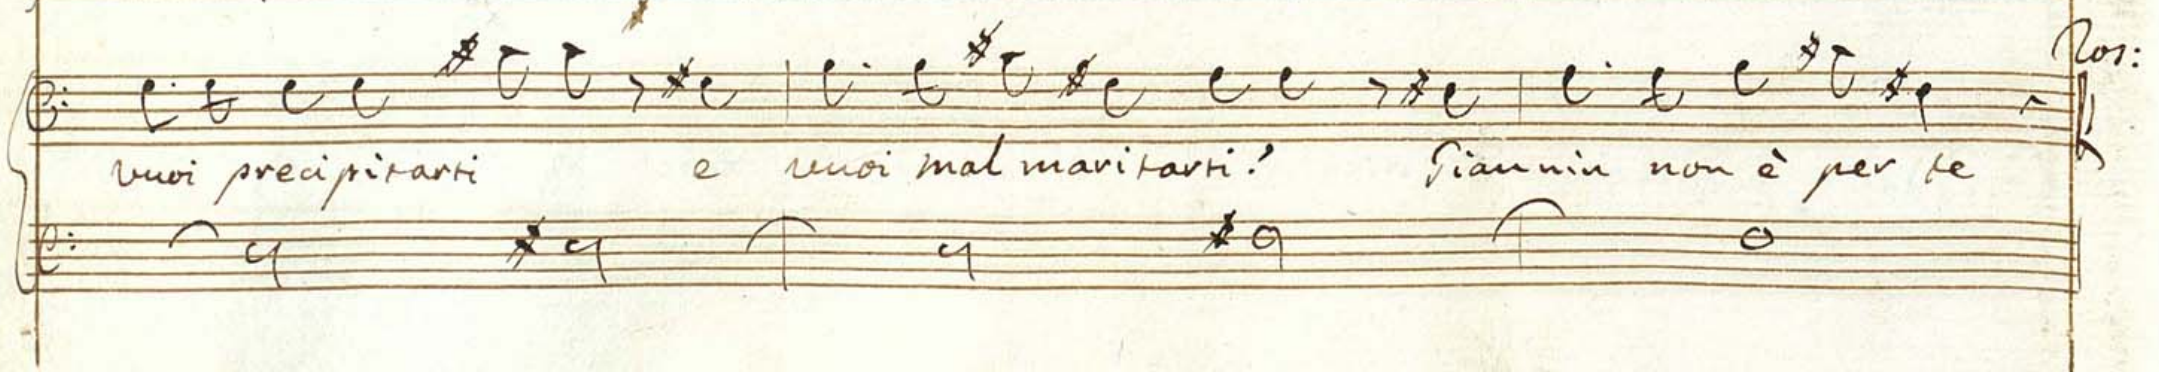 Ros:
vuoi precipitarti e vuoi mal maritarti? Giannin non è per te